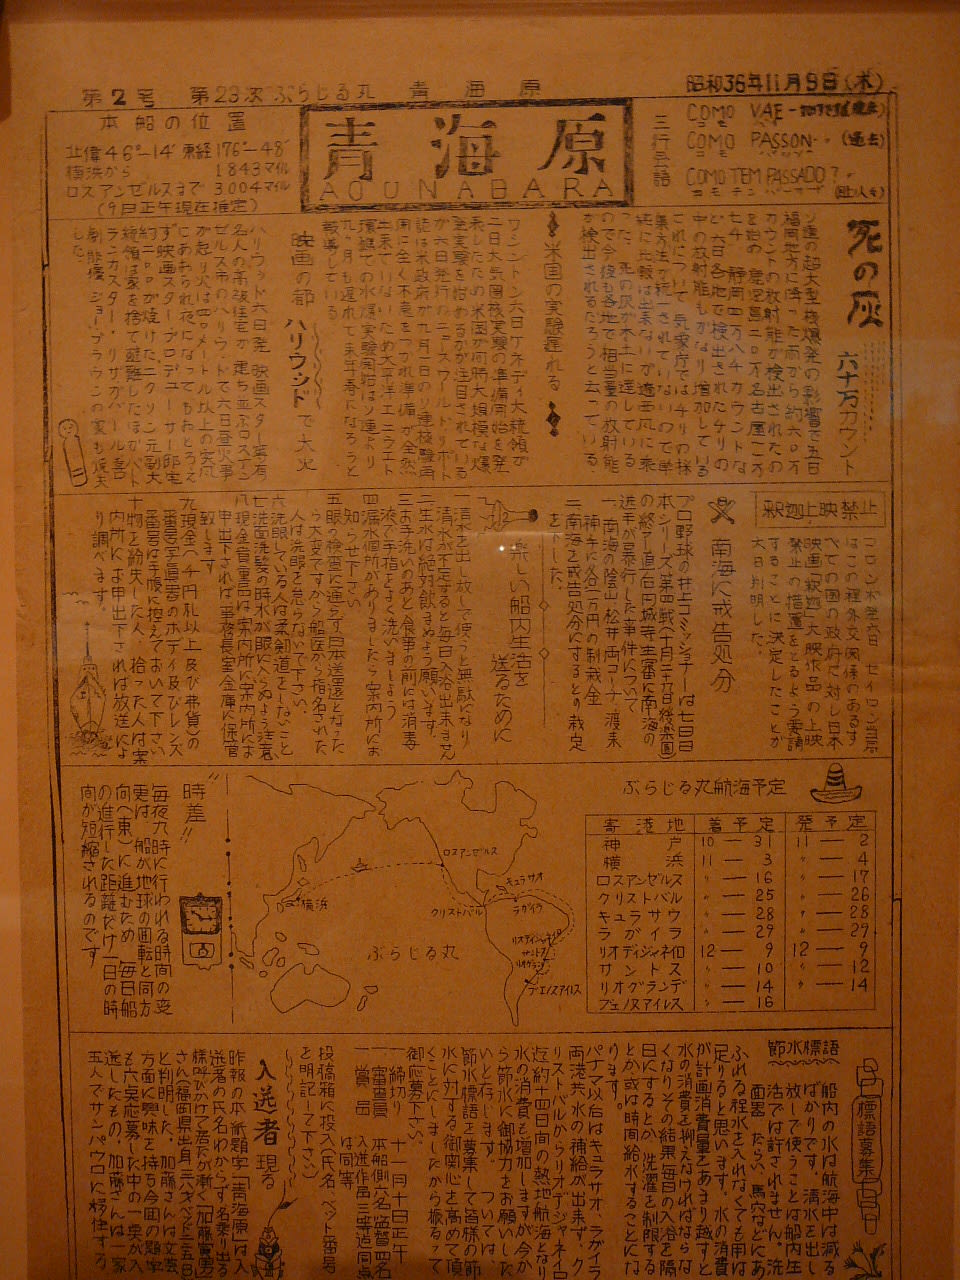 第2号 第23次ぶらじる丸 青海原 昭和36年11月9日(木)
本船の位置
北偉46°-14′東経176°-48′
横浜から 1843マイル
ロスアンゼルスまで 3004マイル
(9日正午現在推定)
青海原
AOUNABARA
三行葡語
COMO VAE
コモ
COMO PASSON (過去)
コモ パッソン
COMO TEM PASSADO?
コモ テン パサード
死の灰 六十万カウント
ソ連の超大型核爆発の影響で五日
福岡地方に降った雨から約六〇万
カウントの放射能が検出されたの
を始め、鹿児島二〇万名古屋一万
七千、静岡四万八千カウントな
ど六日各地で検出されたチリの
中の放射能もかなり増加している
これについて気象庁では「チリの採
集方法が統一されていないので単
純に比較は出来ないが偏西風に乗
った死の灰が本土に達している
ので今後も各地で相当量の放射能
が検出されるだろうと云っている
米国の実験遅れる
ワシントン六日ケネディ大統領が
二日大気圏核実験の準備開始を発
表したため米国が何時大規模な爆
発実験を始めるかが注目されている
が六日発売のニュースワールドリポート
誌は米政府が九月一日のソ連核実験再
開に全く不意をつかれ準備が全然
出来ていないため太平洋エニウエトク
環礁での水爆実験開始はソ連より
九ヶ月も遅れて来年春になろうと
報導している
映画の都 ハリウッドで大火
ハリウッド六日発 映画スター等有
名人の高級住宅が建ち並ぶロスアン
ゼルス市のハリウッドで六日昼火事
が起り火は四〇メートル以上の突風
にあおられ夜になってもおとろえ
ず映画スター、プロデューサー邸宅
約二〇〇が焼けたニクソン元副大
統領は家を捨て避難したほかバート
ランカスター、リザガバール、喜
劇俳優ジョーブラウンの家も焼失
した。
釈迦上映禁止
コロンボ発六日 セイロン当局
はこの程外交関係のあるす
べての国の政府に対し日本
映画「釈迦」大映作品の上映
禁止の措置をとるよう要請
することに決定したことが
六日判明した。
南海に戒告処分
プロ野球の井上コミッショナーは七日日
本シリーズ第四戦(十月二十九日後楽園)
の終了直后円城寺主審に南海の
選手が暴行した事件について
一、南海の陰山、松井両コーチ、渡来
神手に各一万円の制裁金
二、南海を戒告処分にするとの裁定
を下した。
楽しい船内生活を
送るために
一、清水を出し放しで使うと無駄になり
清水が不足すると毎日入浴出来ません
二、生水は絶対飲まぬよう願います。
三、お手洗いのあと食事の前には消毒
液で手指をよく洗いましょう
四、漏水個所がありましたら案内所にお
知らせ下さい
五、眼の検査に通らず日本送還となった
ら大変ですから船医から指名された
人は洗眼を怠らないで下さい。
六、洗眼している人は柔剣道をしないこと
七、洗面洗髪の時水が眼に入らぬよう注意
八、現金貴重品は案内所に案内所によ
申出下されば事務長室金庫に保管
致します
九、現金(一千円札以上及び弗貨)の
番号写真器のボディ及びレンズ
番号は手帳に控えておいて下さい
十、物を紛失した人、拾った人は案
内所にお申出下されば放送によ
り調べます。
ぶらじる丸航海予定
寄港地 着予定 発予定
神戸 10―31 11―2
横浜 11―3 〃―4
ロスアンゼルス 〃―16 〃―17
クリストバル 〃―25 〃―26
キュラサウ 〃―28 〃―28
ラガイラ 〃―29 〃―29
リオディジャネイロ 12―9 12―9
サントス 〃―10 〃―12
リオグランデ 〃―14 〃―14
ブェノスアイレス 〃―16
ロスアンゼルス
横浜
クリストバル
キュラサオ
ラガイラ
リオディジャネイロ
サントス
リオグランデ
ブエノスアイレス
ぶらじる丸
時差!!
毎夜九時に行われる時間の変
更は、船が地球の回転と同方
向(東)に進むため、毎日船
の進行した距離だけ一日の時
間が短縮されるのです
標語募集
節水標語
船内の水は航海中は減る
ばかりです。清水を出し
放しで使うことは船内生
活では許されません。洗
面器、たらい、馬穴などにあ
ふれる程水を入れなくても用は
足りると思います。水の消費
が計画消費量をあまり越すと
水の消費を抑えなければならな
くなりその結果毎日の入浴を隔
日にするとか、洗濯を制限する
とか或は時間給水することにな
パナマ以后はキュラサオ、ラガイラ
両港共水の補給が出来ず、ク
リストバルからリオデジャネイロ
迄約十四日間の熱地航海となり
水の消費は増大しますが今か
ら節水に御協力をお願いした
いと存じます。ついては、
節水標語を募集して皆様の節
水に対する御関心を高めて頂
くことにしましたから振るって
御応募下さい。
一、締切り 十一月十日正午
一、審査員 本船側六名、監督四名
一、賞品 入選作品三等迄同点
は同等
投稿箱に投入(氏名、ベット番号
を明記して下さい)
入選者現る
昨報の本紙題字「青海原」は入
選者の氏名わからず名乗り出る
様呼びかけて居たが漸く「加藤寅実
さん(福岡県出身 ベッド三五
と判明した。加藤さんは文芸
方面に興味を持ち今回の題字
も六点応募した中の一変が入
選したもの。加藤さんは一家
五人でサンパウロに移住する